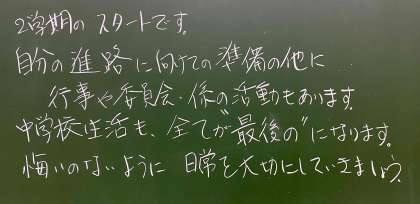 2学期のスタートです。
自分の進路に向けての準備の他に
行事や委員会・係の活動もあります。
中学校生活も、全てが"最後の"になります。
悔いのないように 日常を大切にしていきましょう。